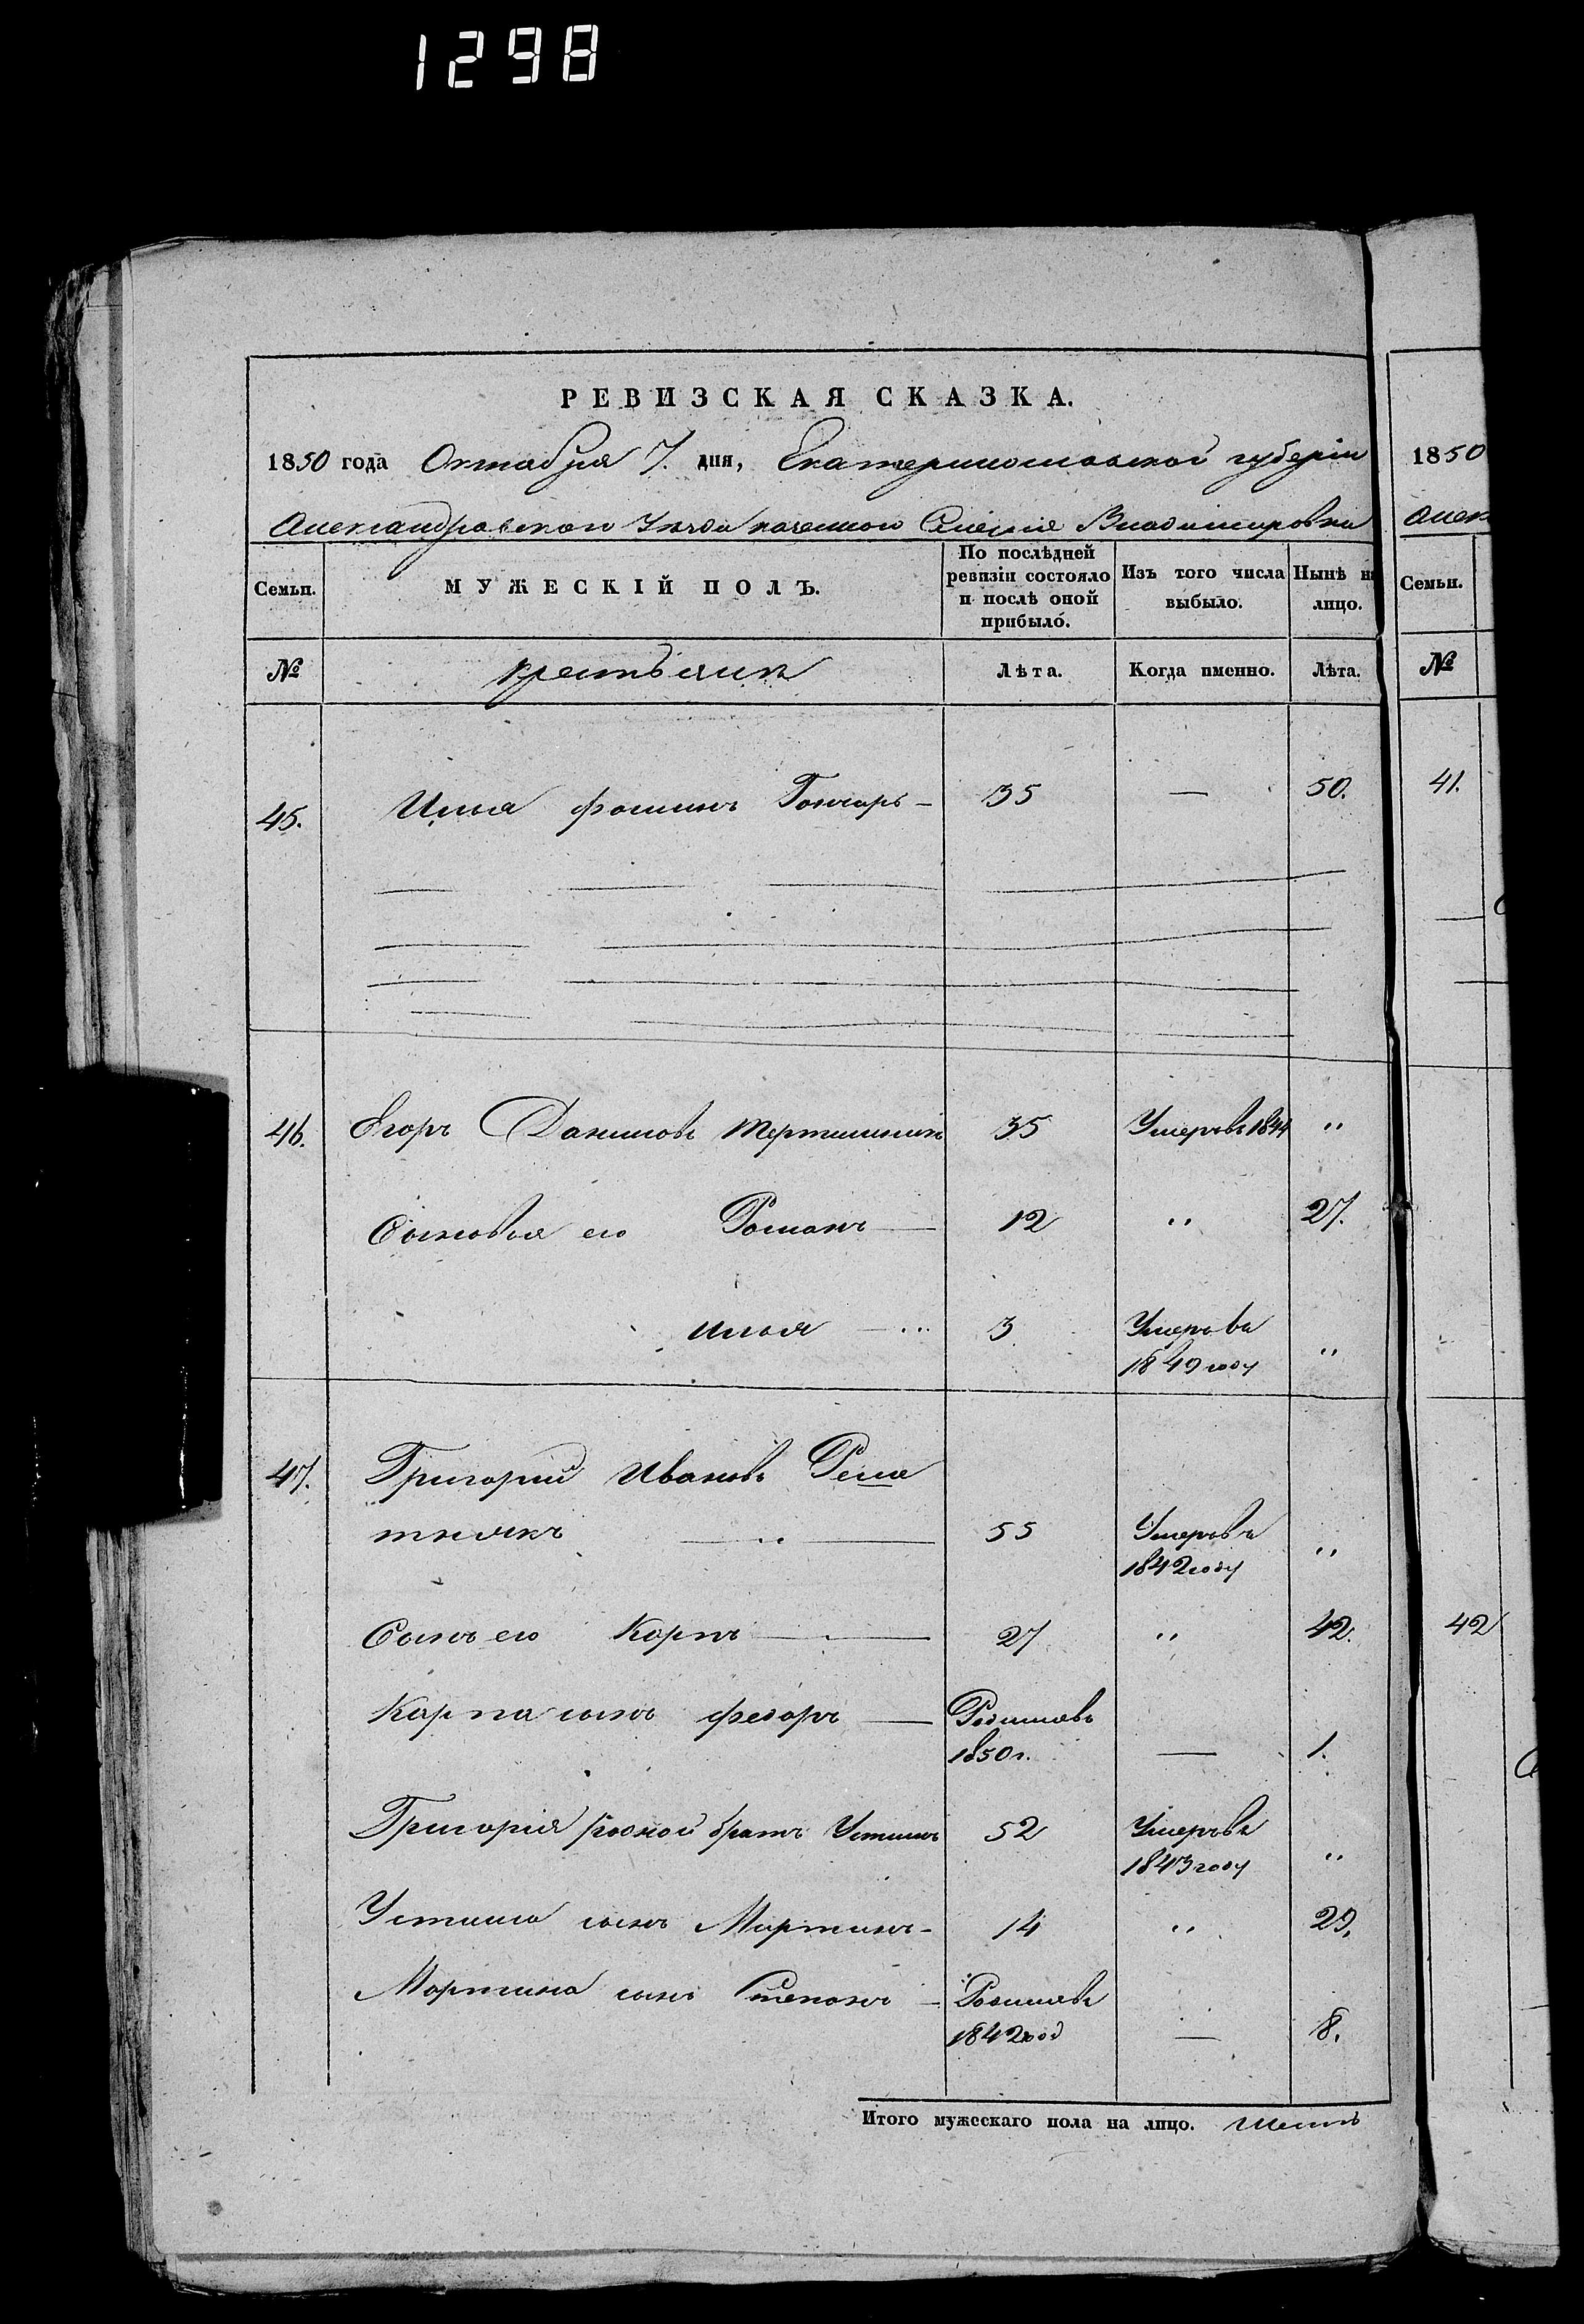 1298
РЕВИЗСКАЯ СКАЗКА.
1850 года Октября 7. дня, Екатеринославской губерніи
Александровскаго Уѣзда казенного Селенія Владимировки
Семьи. МУЖЕСКІЙ ПОЛЪ. По послѣдней ревизіи состояло и послѣ оной прибыло. Изъ того числа выбыло. Нынѣ на лицо.
№ крестьянъ Лѣта. Когда именно. Лѣта.
45. Илья Фоминъ Гончаръ — 35 — 50.
46. Егоръ Даниловъ Тертишникъ 35 Умеръ въ 1844 "
Сыновья его Романъ — 12 " 27.
Илья — 3 Умеръ въ
1849 году "
47. Григорій Ивановъ Реше
тнякъ — " — 55 Умеръ въ
1842 году "
Сынъ его Карпъ — 27 " 42.
Карпа сынъ Федоръ — Родился въ
1850 г. — 1.
Григорія родной братъ Устинъ 52 Умеръ въ
1843 году "
Устина сынъ Мартинъ — 14 " 29.
Мартина сынъ Степанъ — Родился въ
1842 год — 8.
Итого мужескаго пола на лицо. Шесть
1850
Алек
Семьи.
№
41.
42